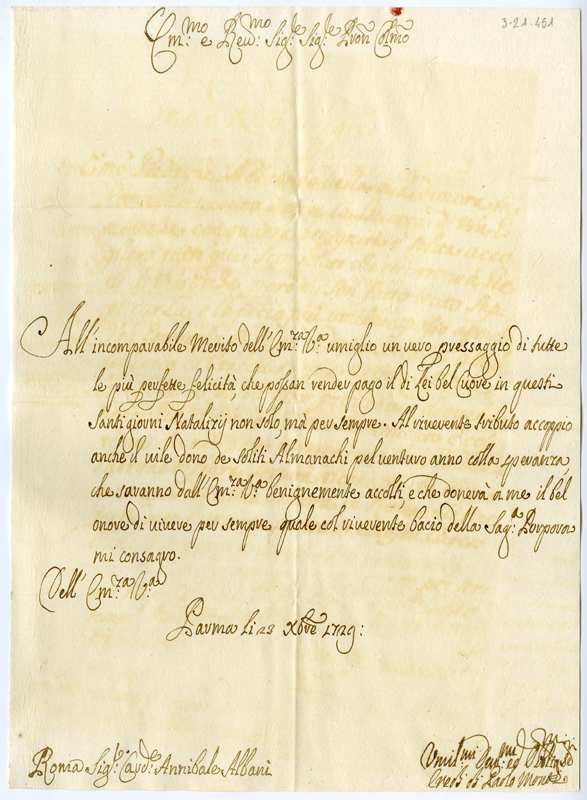 3-21-451
Em:mo e Rev:mo Sig:e Sig:e Pron Colmo
All'incomparabile Merito dell'Em:za V:a umiglio un vero pressaggio di tutte
le più perfette felicità, che possan render pago il di Lei bel Cuore in questi
Santi giorni Natalizij non solo, mà per sempre. Al riverente tributo accoppio
anche il vile dono de soliti Almanachi pel venturo anno colla speranza,
che saranno dall'Em:za V:a benignemente accolti, e che donerà à me il bel
onore di vivere per sempre quale col riverente bacio della Sag:a Porpora
mi consagro.
Dell' Em:za V:a
Parma li 23 Xbre 1729:
Roma Sig:e Card: Annibale Albani
Umil:mi Dev:mi ed Obblig:
Credi di Paolo Monti